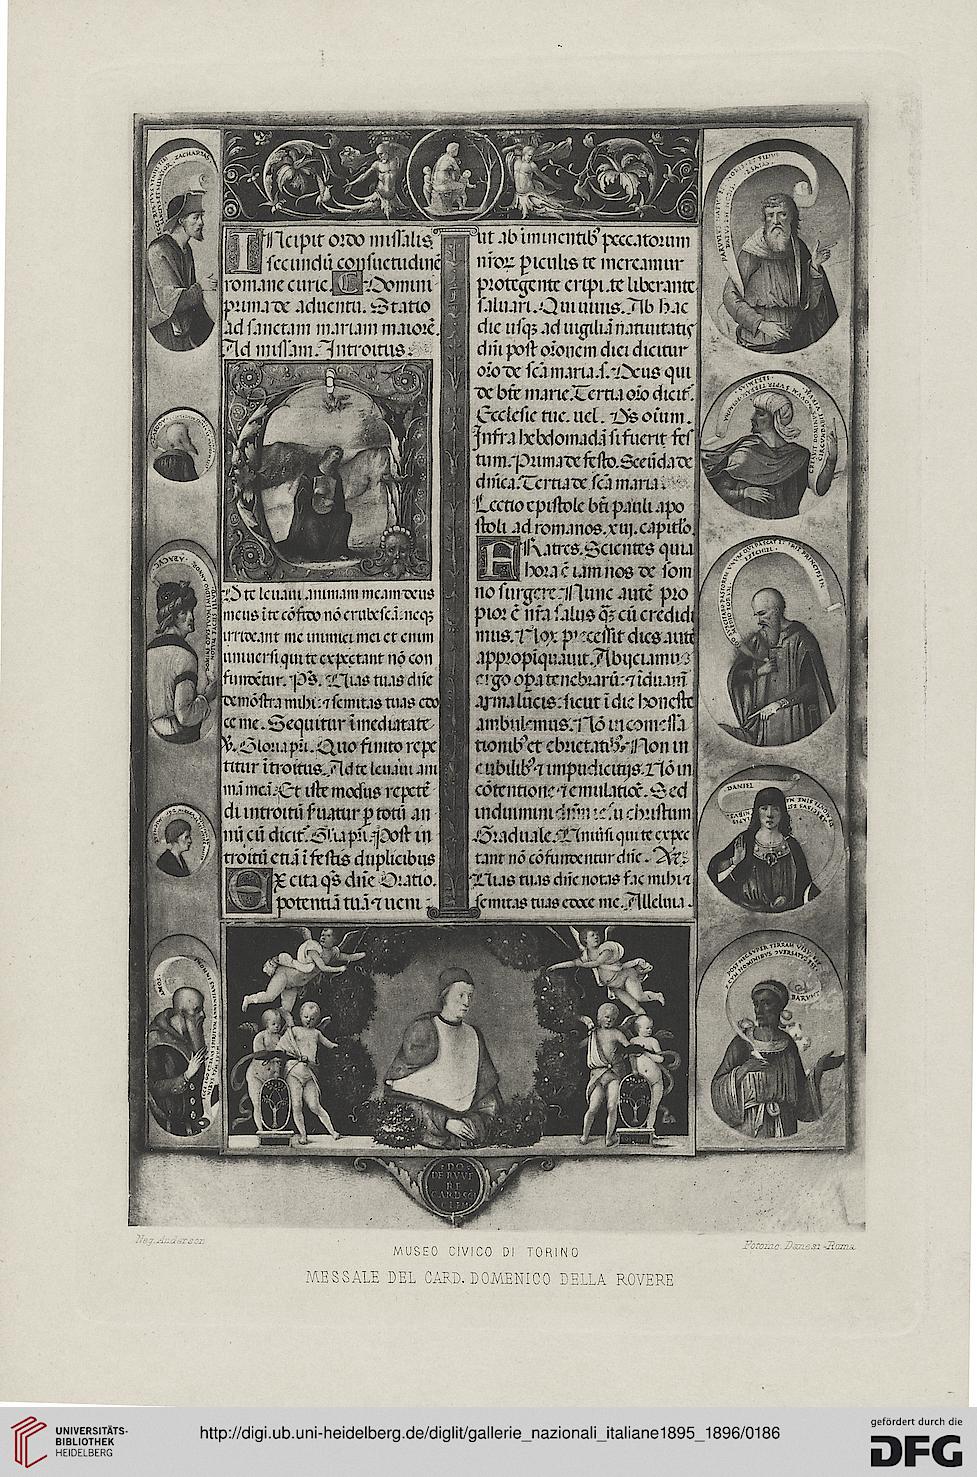 Incipit ordo missalis
secundū consuetudinē
romane curie. Domini
prima de aduentu. Statio
ad sanctam mariam maiorē.
Ad missam. Introitus.
D te leuaui animam meam deus
meus ī te cōfido nō erubescā: neqȝ
irrideant me inimici mei et enim
uniuersi qui te expectant nō con
fundētur. Ps. Uias tuas dñe
demōstra mihi: ⁊ semitas tuas edo
ce me. Sequitur īmediatate
℣. Gloria pri. Quo finito repe
titur ītroitus. Ad te leuaui ani
mā meā. Et iste modus repetē
di introitū suatur ꝑ totū an
nū cū dicit̄. Gl'ia pri. Post in
troitū etiā ī festis duplicibus
Excita qs dñe Oratio.
potentiā tuā ⁊ ueni:
ut ab iminentibȝ peccatorum
nr̄oꝝ ꝑiculis te mereamur
protegente eripi. te liberante
saluari. Qui uiuis. Ab hac
die usqȝ ad uigiliā natiuitatis
dñi post orōnem diei dicitur
orō de scā maria. s. Deus qui
de bte marie. Tertia orō dicit̄.
Ecclesie tue. uel. Ds oium.
Infra hebdomadā si fuerit fes
tum. Prima de festo. Secūda de
dñica. Tertia de scā maria.
Lectio epistole bti pauli apo
stoli ad romanos. xiij. capitlo.
FRatres. Scientes quia
hora ē iam nos de som
no surgere. Nunc autē pro
pior ē nr̄a salus qȝ cū credidi
mus. Nox precessit dies autē
appropīquauit. Abijciamus
ergo oꝑa tenebrarū: ⁊ īduam
arma lucis: sicut ī die honeste
ambulemus. Nō in comessa
tionibȝ et ebrietatibȝ. Non in
cubilibȝ ⁊ impudicitijs. Nō in
cōtentione ⁊ emulatiōe. Sed
induimini christum
Graduale. Uniūsi qui te expec
tant nō cōfundentur dñe.
Uias tuas dñe notas fac mihi ⁊
semitas tuas edoce me. Alleluia.
ZACHARIAS
ABACVC
AMOS
DANIEL
BARVCH
·DO·
DE RVVE
RE
CARD SCI
CLEM
Neg. Anderson
Fotoinc. Danesi-Roma
MUSEO CIVICO DI TORINO
MESSALE DEL CARD. DOMENICO DELLA ROVERE
UNIVERSITÄTS-
BIBLIOTHEK
HEIDELBERG
http://digi.ub.uni-heidelberg.de/diglit/gallerie_nazionali_italiane1895_1896/0186
gefördert durch die
DFG